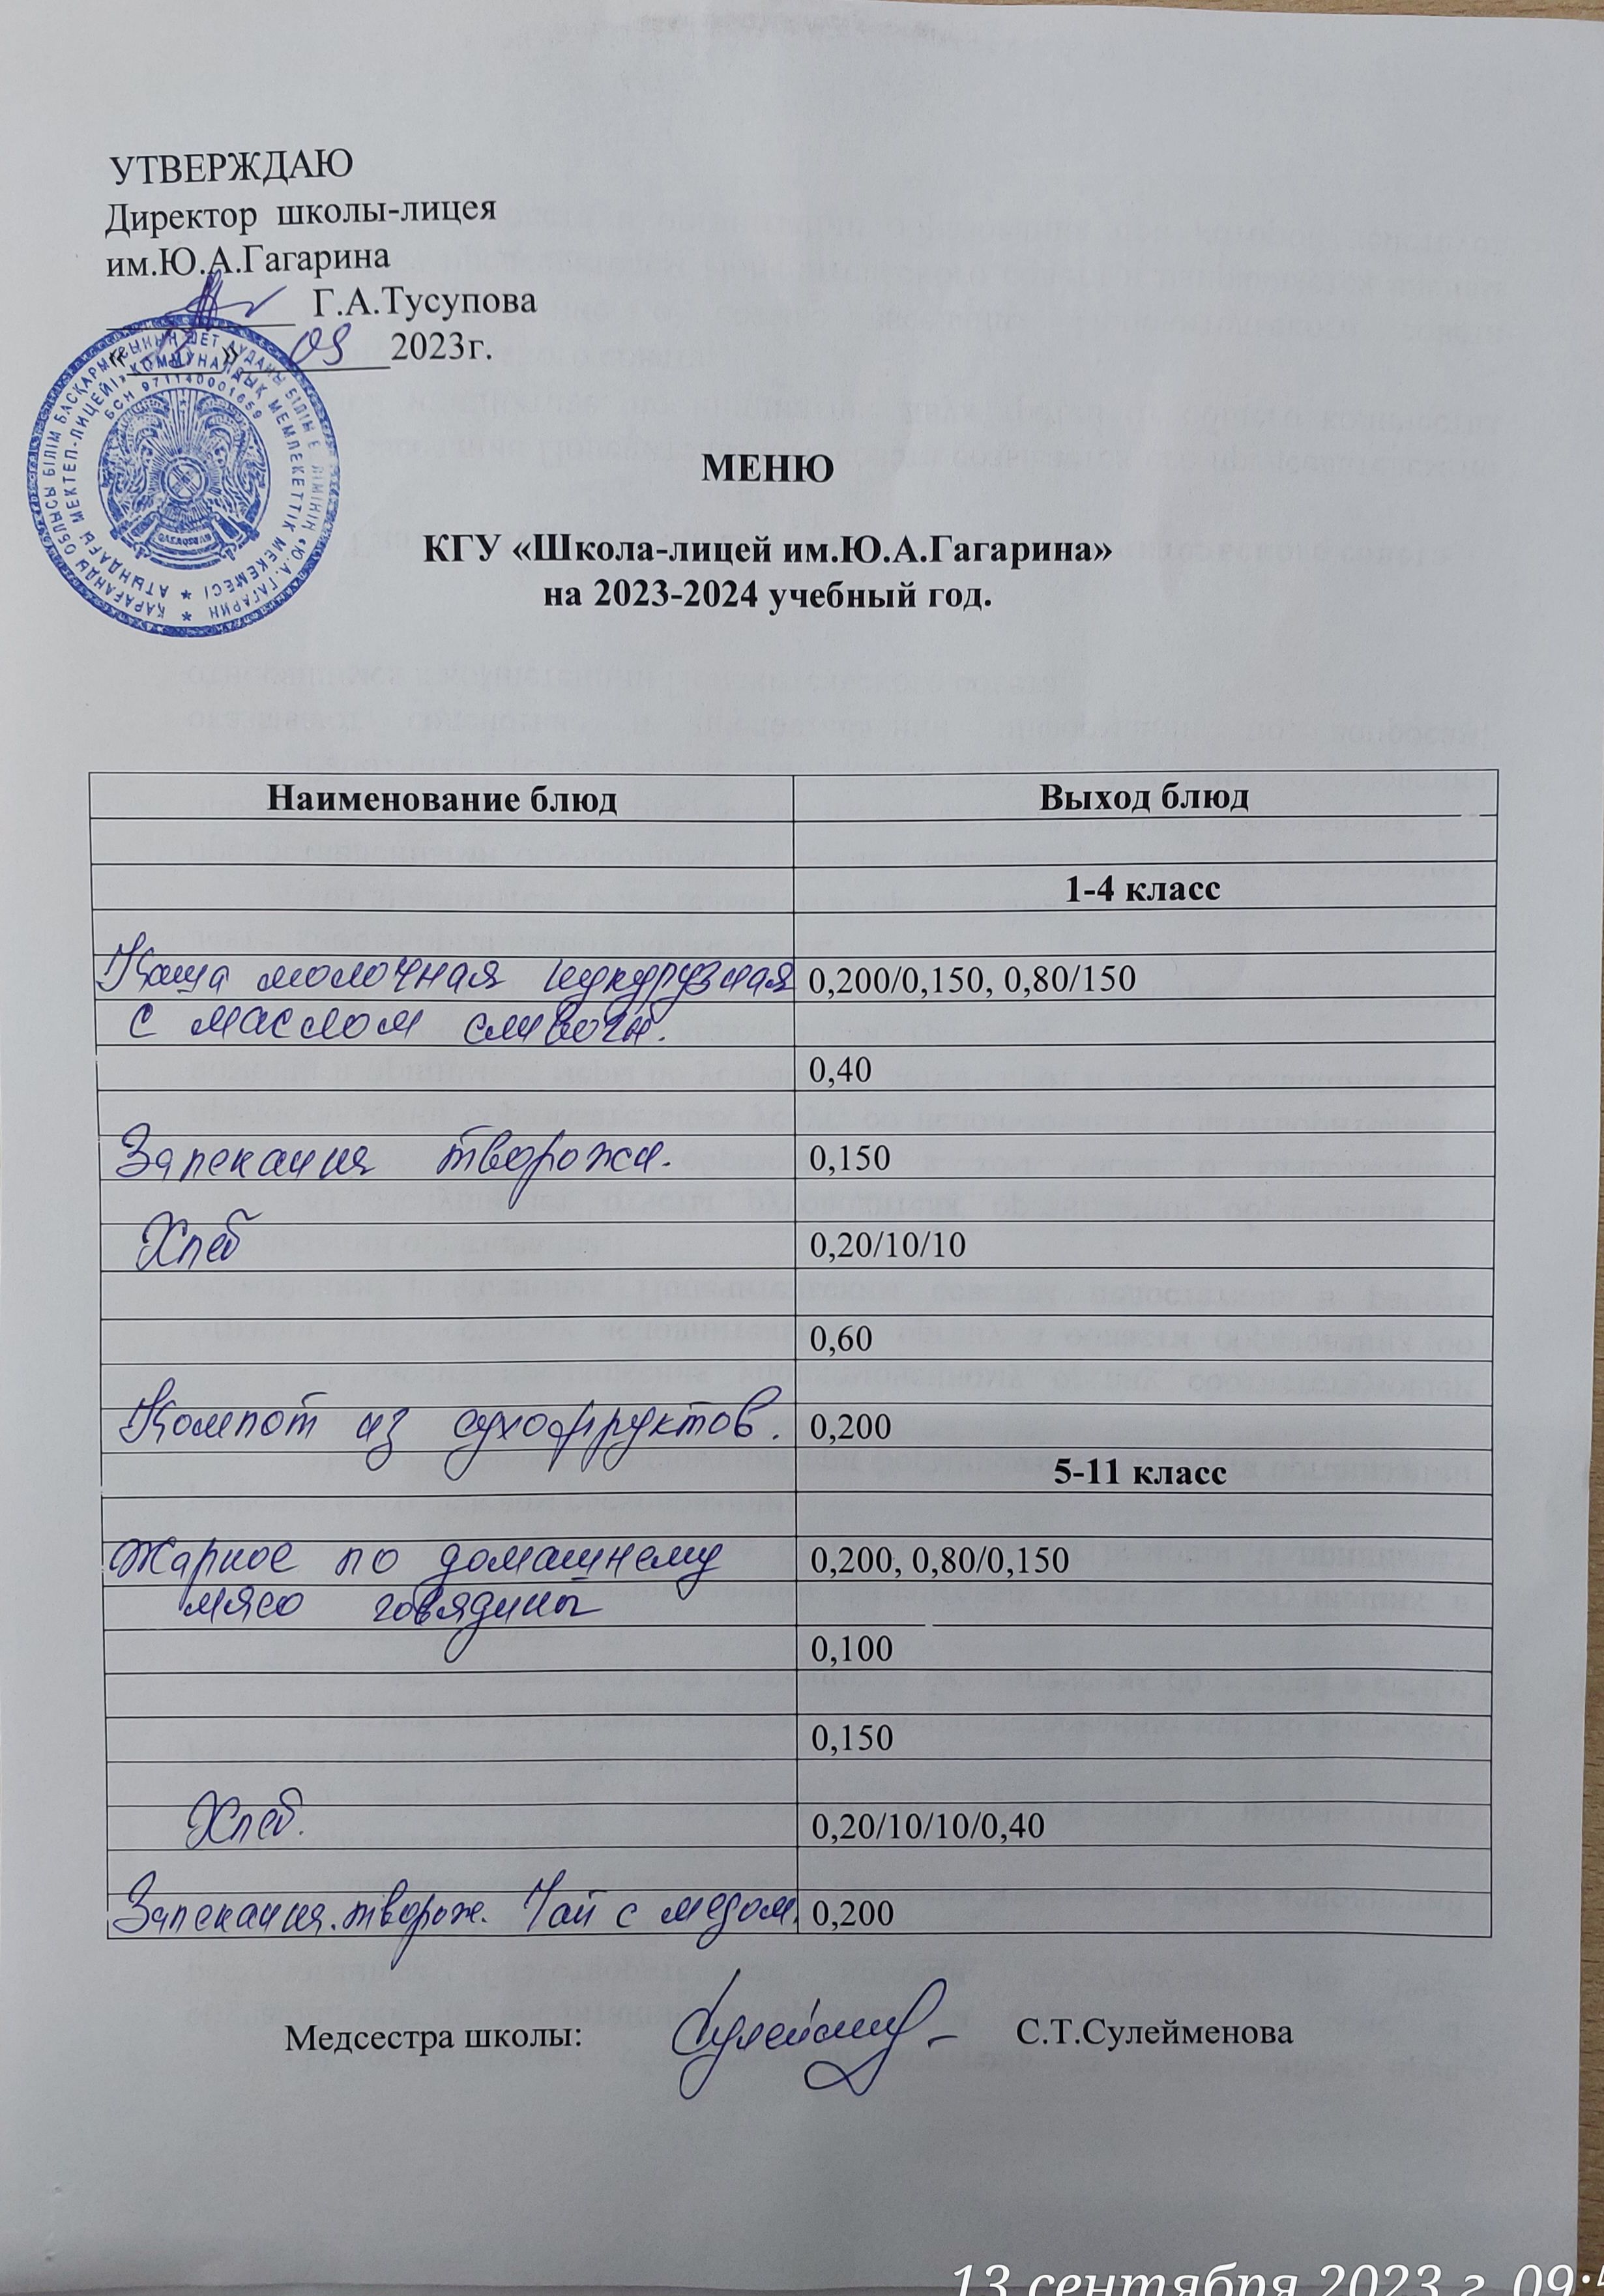 УТВЕРЖДАЮ
Директор школы-лицея
им.Ю.А.Гагарина
Г.А.Тусупова
«13» 09 2023г.
ҚАРАҒАНДЫ ОБЛЫСЫ БІЛІМ БАСҚАРМАСЫНЫҢ ШЕТ АУДАНЫ БІЛІМ БӨЛІМІНІҢ «Ю.А.ГАГАРИН
АТЫНДАҒЫ МЕКТЕП-ЛИЦЕЙІ» КОММУНАЛДЫҚ МЕМЛЕКЕТТІК МЕКЕМЕСІ
БСН 971140001659
МЕНЮ
КГУ «Школа-лицей им.Ю.А.Гагарина»
на 2023-2024 учебный год.
Наименование блюд Выход блюд
1-4 класс
Каша молочная кукурузная 0,200/0,150, 0,80/150
с маслом сливочн.
0,40
Запекания творожн. 0,150
Хлеб 0,20/10/10
0,60
Компот из сухофруктов. 0,200
5-11 класс
Жаркое по домашнему 0,200, 0,80/0,150
мясо говядины
0,100
0,150
Хлеб. 0,20/10/10/0,40
Запекания.творож. Чай с медом. 0,200
Медсестра школы: С.Т.Сулейменова
13 сентября 2023 г. 09: